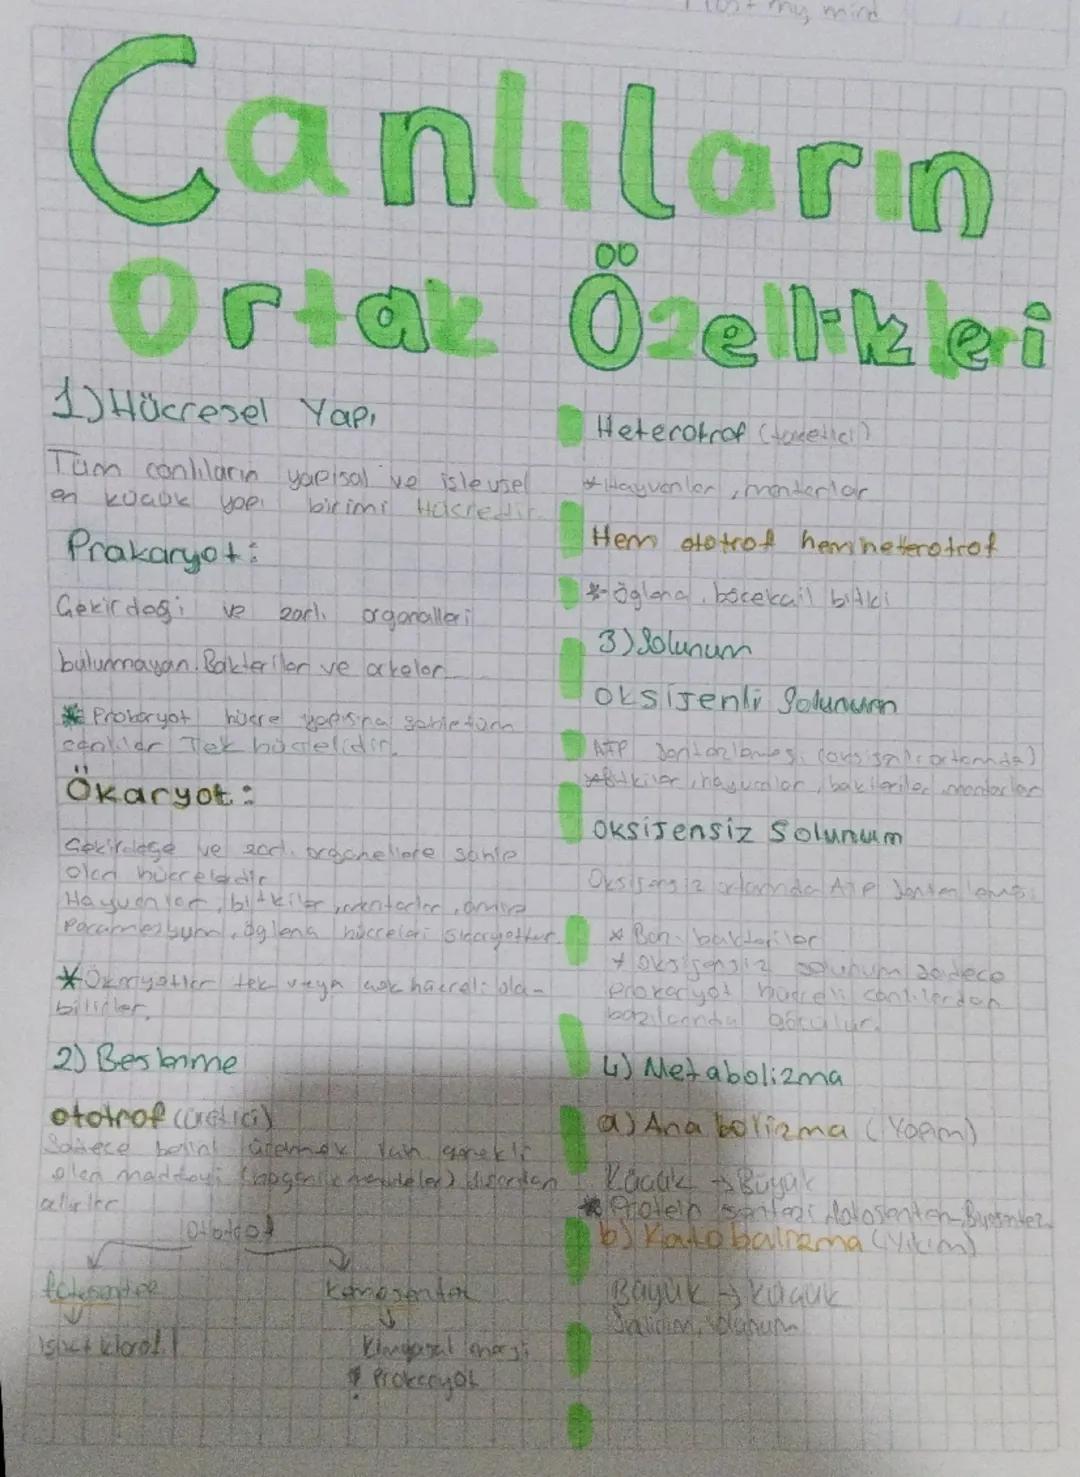 my mind
Canlıların
Ortak Özellikleri
1) Hücresel Yapı
Tüm canlıların yapısal ve işlevsel
en küçük yapı birimi Hücredir.
Prakaryot:
Çekirdeği ve zarlı organelleri
bulunmayan. Bakteriler ve arkeler
* Prokaryot hücre yapısına sahip tüm
canlılar Tek hücrelidir.
Ökaryot:
Çekirdeğe ve zarlı organellere sahip
olan hücrelerdir
Hayvanlar, bitkiler, mantarlar, amip
öglena hücreleri
* Ökaryotlar tek veya çok hücreli ola-
bilirler.
2) Beslenme
ototrof (üretici)
Sadece besini üretmek için gerekli
olan maddeyi dışardan
alırlar
Ototrof
fotosentez kemosentez
ışık + klorofil Kimyasal enerji
! Prokaryot
Heterotrof (tüketici)
* Hayvanlar, mantarlar
Hem ototrof hem heterotrof
* Öglena, böcekçil bitki
3) Solunum
Oksijenli Solunum
ATP sentezlemesi (oksijenli ortamda)
* Bitkiler, hayvanlar, bakteriler, mantarlar
Oksijensiz Solunum
Oksijensiz ortamda ATP
* Bazı bakteriler
* Oksijensiz solunum sadece
prokaryot hücreli canlılardan
bazılarında görülür.
4) Metabolizma
a) Anabolizma (Yapım)
Küçük → Büyük
* Protein sentezi, fotosentez
b) Katabolizma (Yıkım)
Büyük → Küçük
Sindirim, solunum